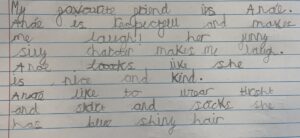 My favourite friend is Anae.
Anae is respectfull and makes
me laugh! her funny
silly makes me laugh.
Anae loocks like she
is nice and kind.
Anae like to wear tirsht
and skirt and socks she
has blue shiny hair